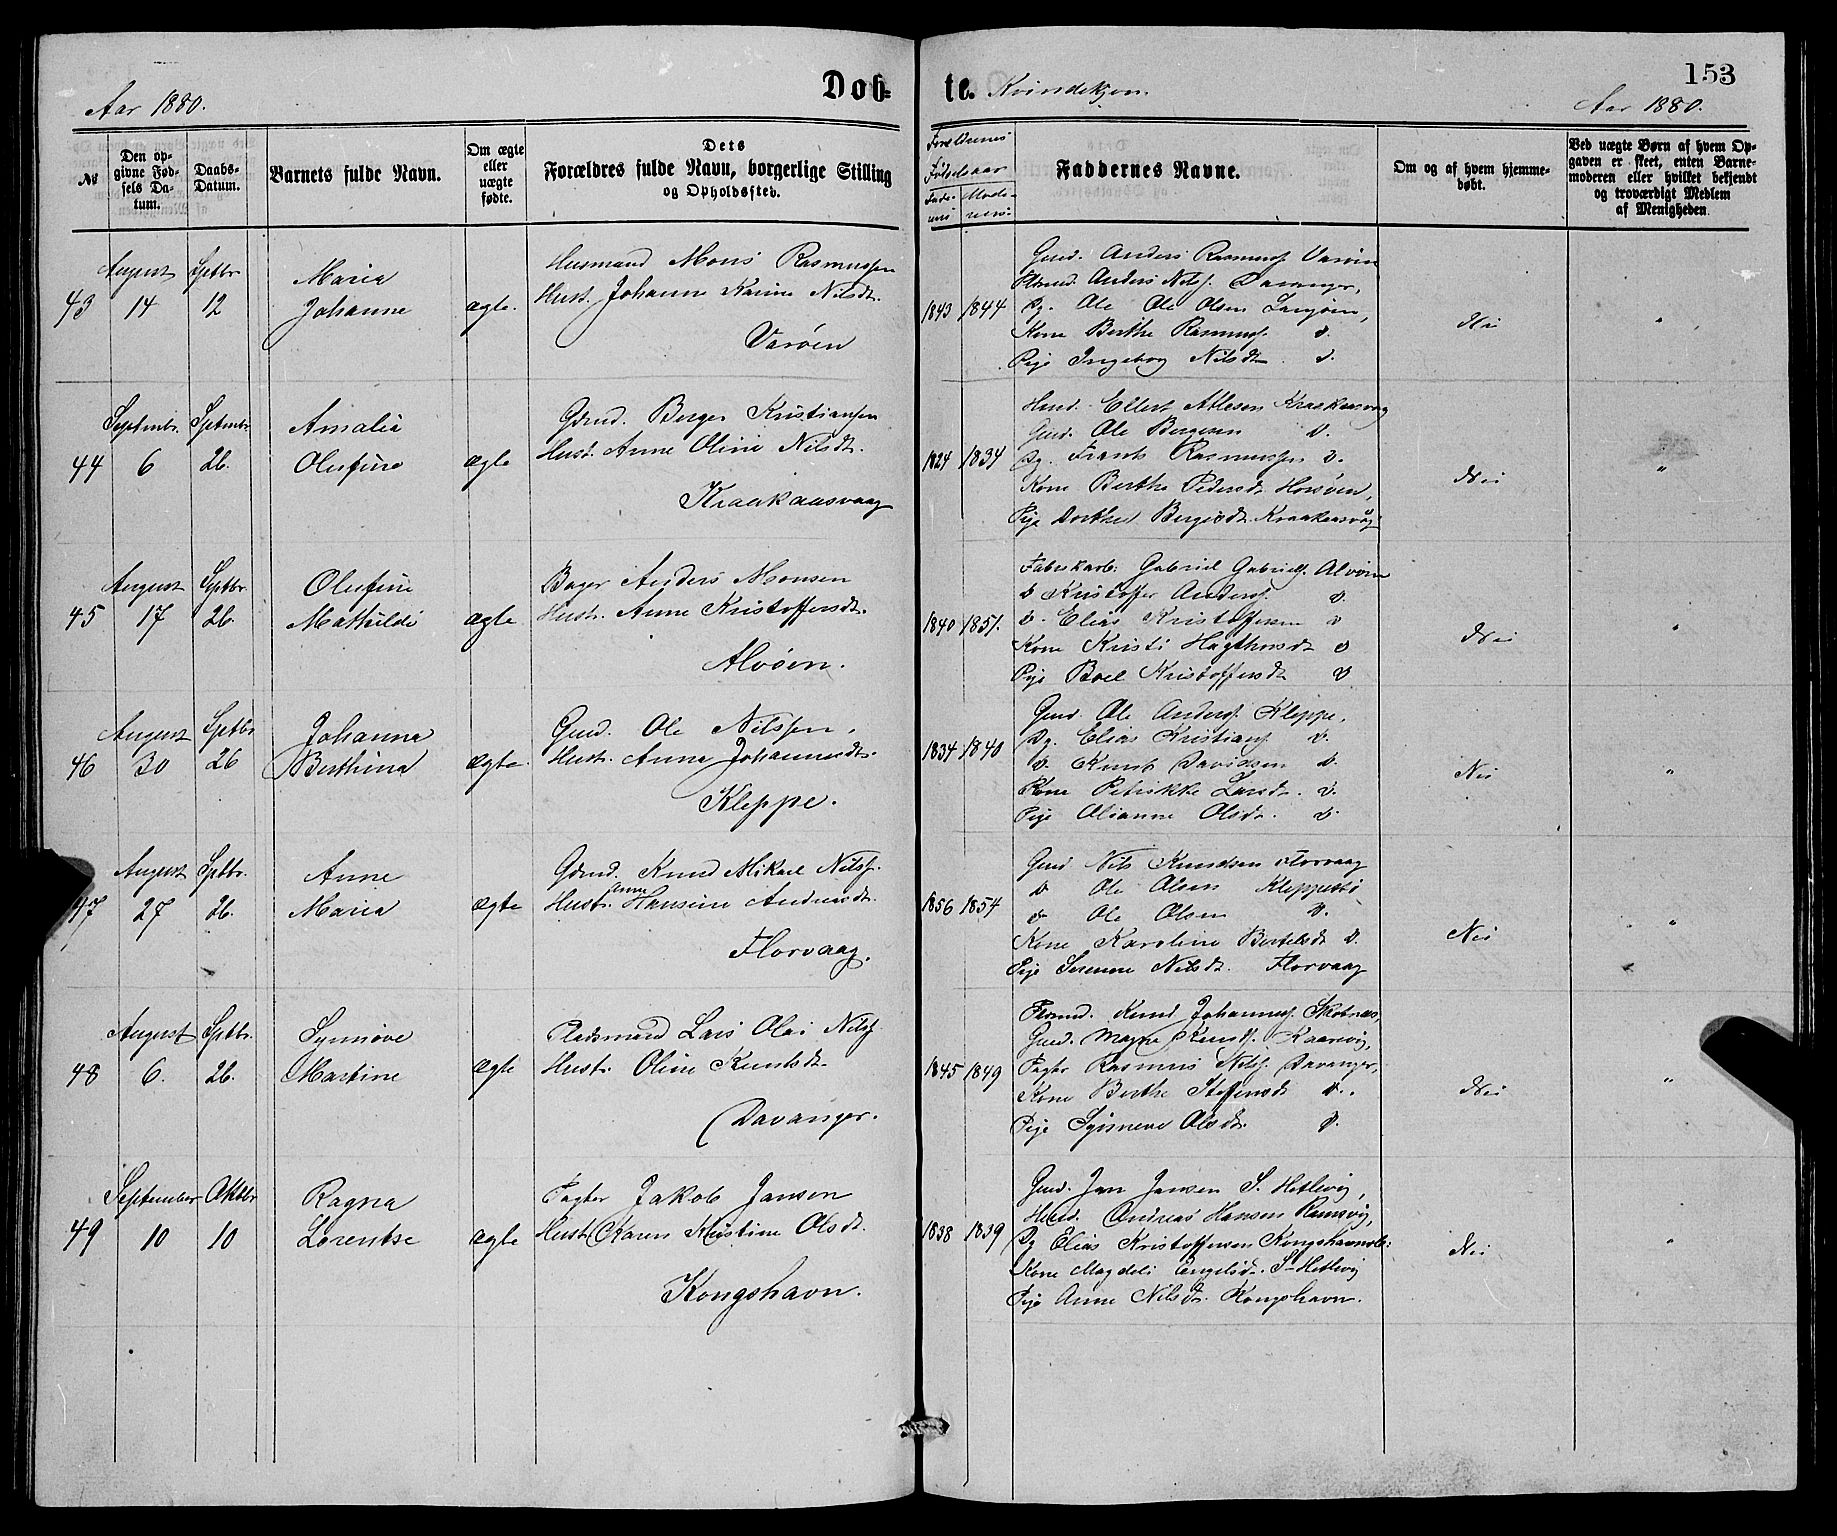 153
Døb-
te. Kvindekjøn.
Aar 1880.
Aar 1880.
No
Den op-
givne Fød-
sels Da-
tum.
Daabs-
Datum.
Barnets fulde Navn.
Om ægte
eller
uægte
fødte.
Dets
Forældres fulde Navn, borgerlige Stilling
og Opholdssted.
Forældrenes
Fødselsaar
Fade-
rens
Mode-
rens
Faddernes Navne.
Om og af hvem hjemme-
døbt.
Ved uægte Børn af hvem Op-
gaven er skeet, enten Barne-
moderen eller hvilket bekjendt
og troværdigt Medlem
af Menigheden.
43
August
14
Sptbr
12
Maria
Johanne
ægte.
Husmand Mons Rasmussen
Hust. Johanne Karine Nilsdt.
Varøen
1843 1844
Gmd. Anders Rasmuss. Varøen
Anders Nilss. Davanger,
Dg. Ole Ole Olsen
Kone Berthe Rasmuss. d.
Pige Ingeborg Nilsdt. d.
Nei
"
44
Septembr.
6
Septmbr.
26.
Amalia
Olufine
ægte
Gdmd. Berger Kristiansen
Hust. Anne Oline Nilsdt.
Kraakaasvaag
1824 1834
Hmd. Ellert Atlesen Kraakaasvaag
Gmd. Ole Bergesen d.
Dg. Frants Rasmussen d.
Kone Berthe Pedersdt. Horsøen,
Pige Dorthea Bergesdt. Kraakaasvåg
Nei
"
45
August
17
Sptbr
26.
Olufine
Mathilde
ægte
Bager Anders Monsen
Hustr. Anne Kristoffersdt.
Alvøen.
1840 1851.
Fabrikarb. Gabriel Gabriels. Alvøen
d Kristoffer Anders. d.
d. Elias Kristoffersen d
Kone Kristi d
Pige Boel Kristoffersdt d
Nei
"
46
August
30
Sptbr
26
Johanna
Berthina
ægte.
Gmd. Ole Nilssen,
Hustr. Anna Johannesdt.
Kleppe.
1834 1840
Gmd. Ole Anders. Kleppe.
Dg. Elias Kristians. d.
d. Knut Davidsen d.
Kone Petrikke Larsdt. d.
Pige Olianne Olsdt. d.
Nei
"
47
August
27
Sptbr.
26.
Anne
Maria
ægte
Gdmd. Knud Mikael Nilss.
Hustr. Anne Hansine Andreasdt.
Florvaag.
1856 1854
Gmd Nils Knudsen Florvaag
d Ole Olsen Kleppestø
d Ole Olsen d.
Kone Karoline Bertelsdt d.
Pige Serene Nilsdt. Florvaag
Nei
"
48
August
6.
Sptbr.
26.
Synnøve
Martine
ægte
Pladsmand Lars Olai Nilss
Hustr. Oline Knutsdt.
Davanger.
1845 1849
Knud Johanness. Skotnæs,
Gmd. Magne Knuds.
Pagter Rasmus Nilss. Davanger,
Kone Berthe Steffensdt d.
Pige Synneve Olsdt. d.
Nei
"
49
September
10
Oktbr
10
Ragna
Lorentse
ægte
Pagter Jakob Jansen
Hustr. Karen Kristine Olsdt.
Kongshavn.
1838 1839
Gmd. Jan Jansen S. Hetlevig,
Hmd. Andreas Hansen Ramsvig,
Dg Elias Kristoffersen
Kone Magdeli Engelsdt. S-Hetlevig
Pige Anne Nilsdt. Kongshavn.
Nei
"